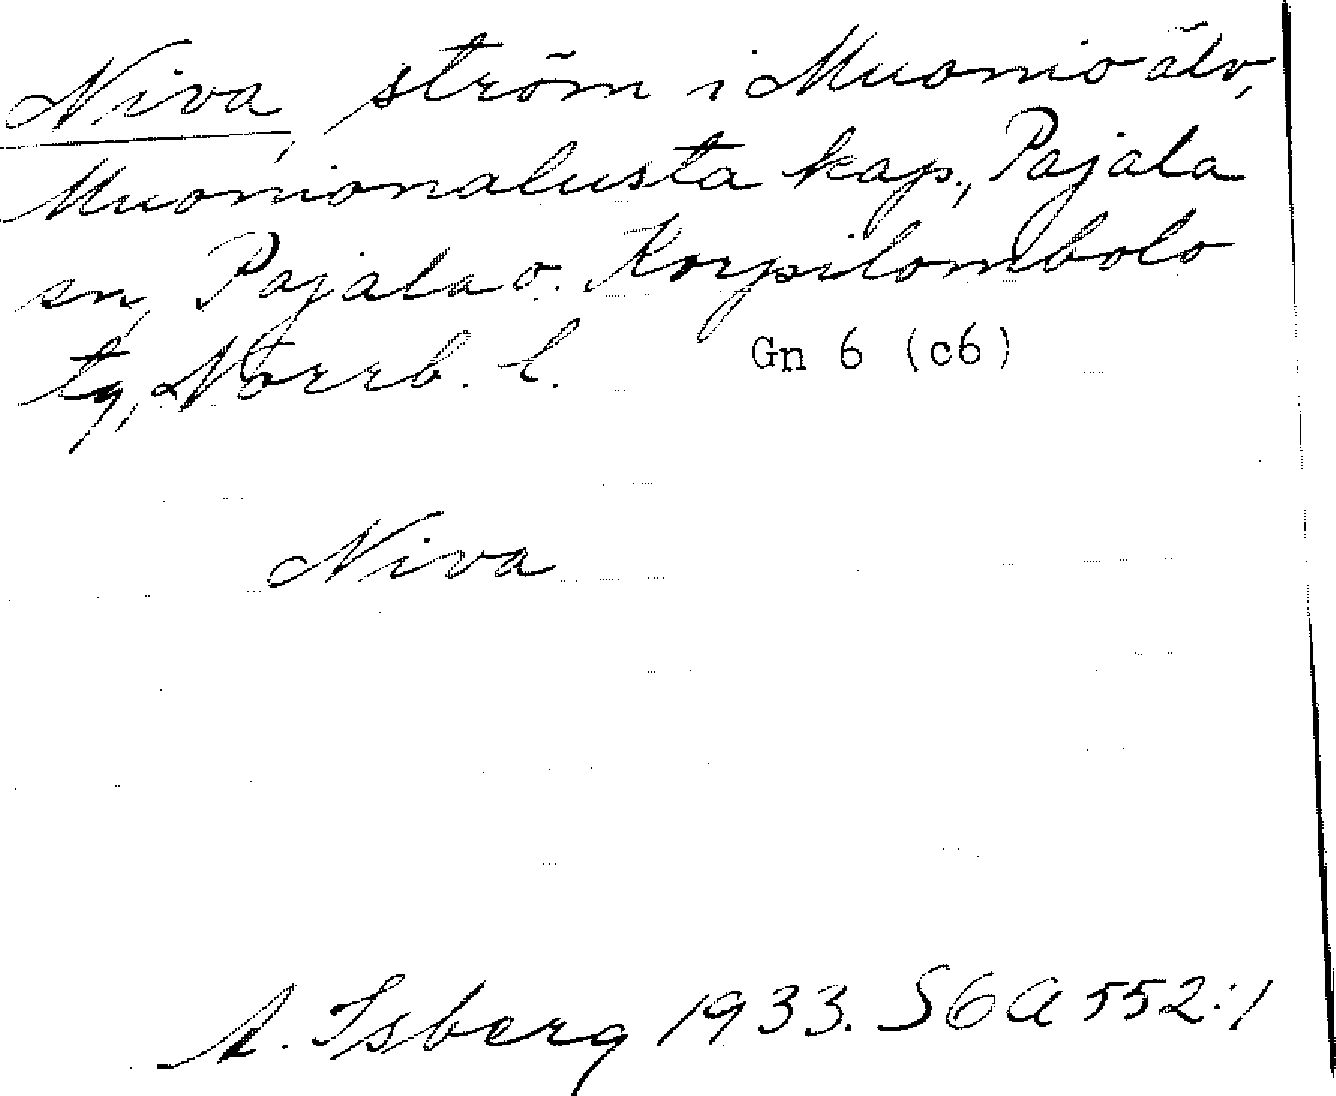 Niva, ström i Muonio älv,
Muonionalusta kap., Pajala
sn, Pajala o. Korpilombolo
tg, Norrb. l. Gn 6 (c6)
Niva
A. Isberg 1933. SGA 552:1